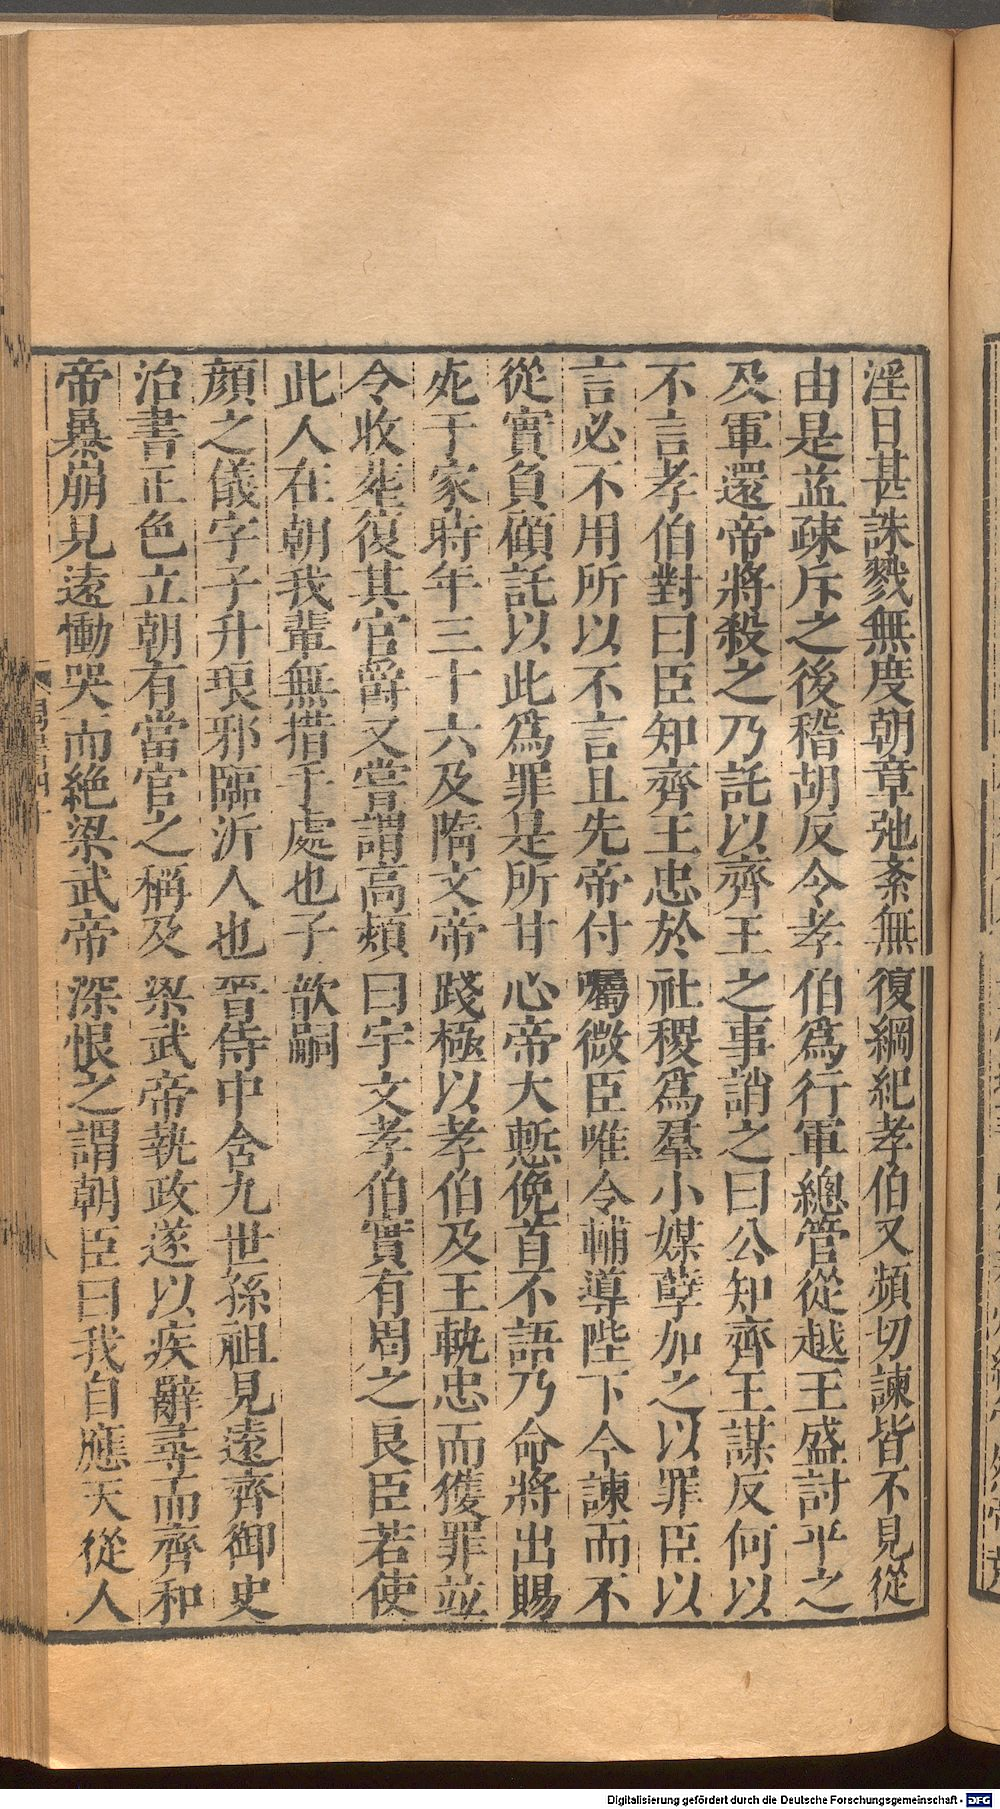 淫日甚誅戮無度朝章弛紊無復綱紀孝伯又頻切諫皆不見從
由是益疎斥之後稽胡反令孝伯爲行軍總管從越王盛討平之
及軍還帝將殺之乃託以齊王之事誚之曰公知齊王謀反何以
不言孝伯對曰臣知齊王忠於社稷爲羣小媒孽加之以罪臣以
言必不用所以不言且先帝付囑微臣唯令輔導陛下今諫而不
從實負顧託以此爲罪是所甘心帝大慙俛首不語乃命將出賜
死于家時年三十六及隋文帝踐極以孝伯及王軌忠而獲罪並
令收葬復其官爵又嘗謂高熲曰宇文孝伯實有周之良臣若使
此人在朝我輩無措手處也子歆嗣
顔之儀字子升琅邪臨沂人也晉侍中含九世孫祖見遠齊御史
治書正色立朝有當官之稱及梁武帝執政遂以疾辭尋而齊和
帝暴崩見遠慟哭而絶梁武帝深恨之謂朝臣曰我自應天從人
Digitalisierung gefördert durch die Deutsche Forschungsgemeinschaft - DFG